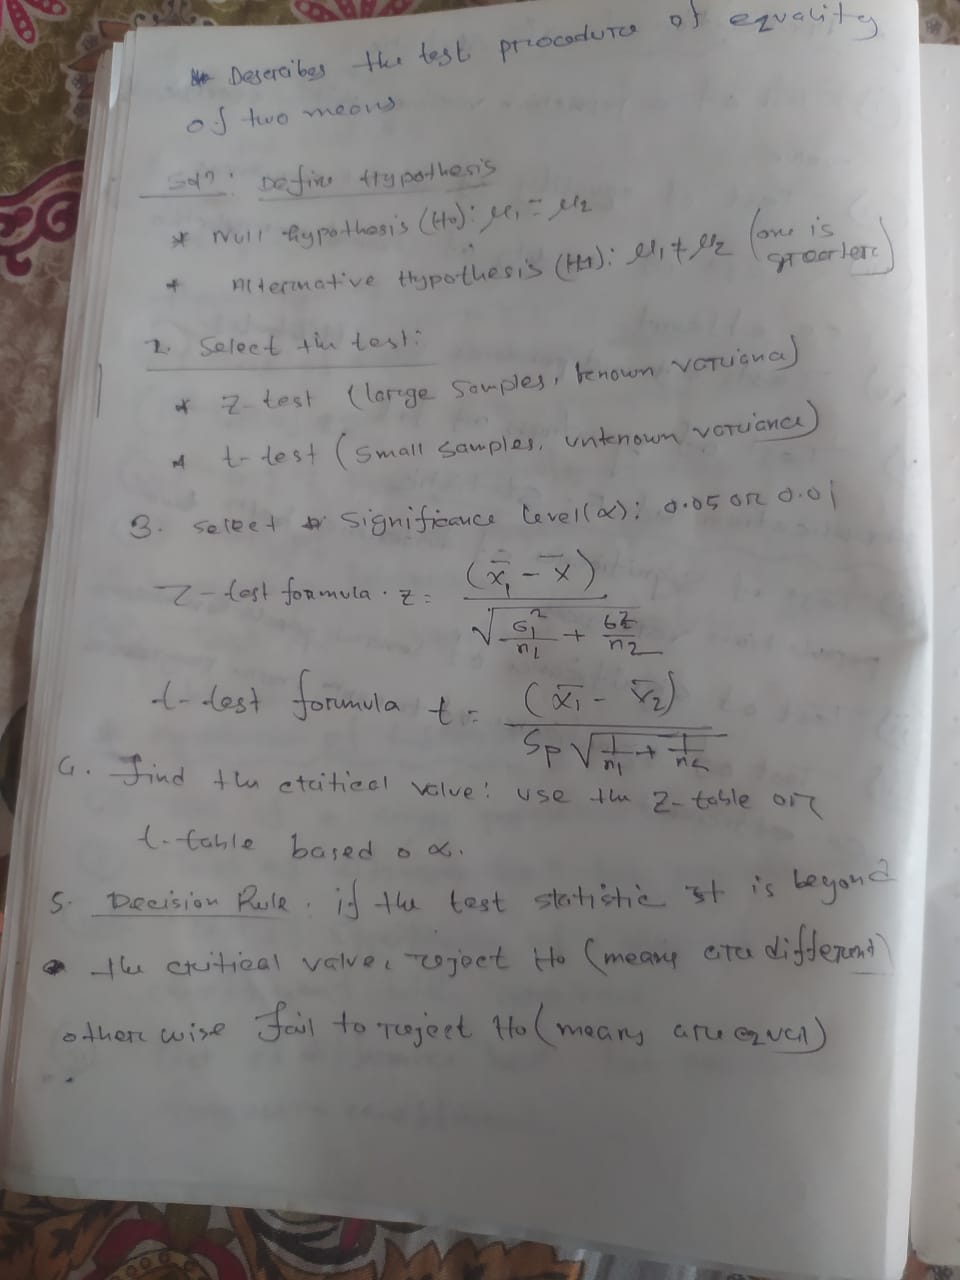 Describes the test procedure of equality
of two means
Soln: Define Hypothesis
* Null Hypothesis (H0): μ1 = μ2
* Alternative Hypothesis (H1): μ1 ≠ μ2 (one is greater)
2. Select the test:
* Z-test (large samples, known variance)
* t-test (small samples, unknown variance)
3. Select Significance level(α): 0.05 or 0.01
Z-test formula. z = (x̄1 - x̄) / √(σ1²/n1 + σ2²/n2)
t-test formula t = (x̄1 - x̄2) / Sp √(1/n1 + 1/n2)
4. Find the critical value: use the Z-table or
t-table based o α.
5. Decision Rule: if the test statistic is beyond
the critical value, reject H0 (means are different)
otherwise fail to reject H0 (means are equal)